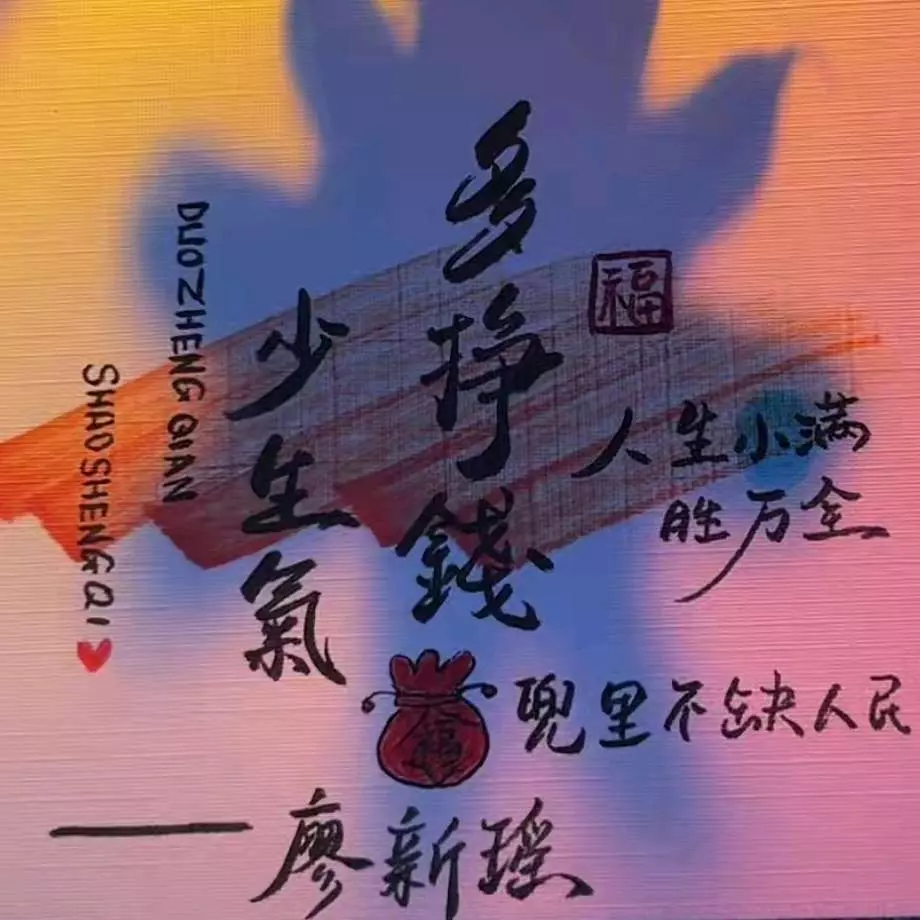 多挣錢
少生氣
DUOZHENG QIAN
SHAOSHENGQI
福
人生小满
胜万全
兜里不缺人民
福
——廖新瑶